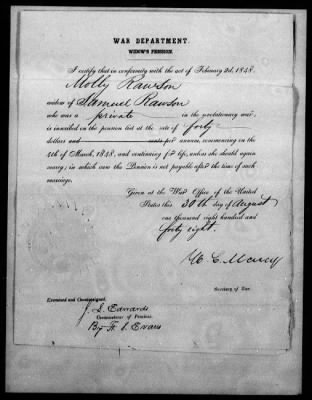 WAR DEPARTMENT.
WIDOW'S PENSION
I certify that in conformity with the act of February 2d, 1848,
Molly Rawson
widow of Samuel Rawson
who was a private in the revolutionary war,
is inscribed on the pension list at the rate of forty
dollars and cents per annum, commencing on the
4th of March, 1848, and continuing for life, unless she should again
marry; in which case the Pension is not payable after the time of such
marriage.
Given at the War Office of the United
States this 30th day of August
one thousand eight hundred and
forty eight.
W. L. Marcy
Secretary of War.
Examined and Countersigned.
J. L. Edwards
Commissioner of Pensions.
By Evans